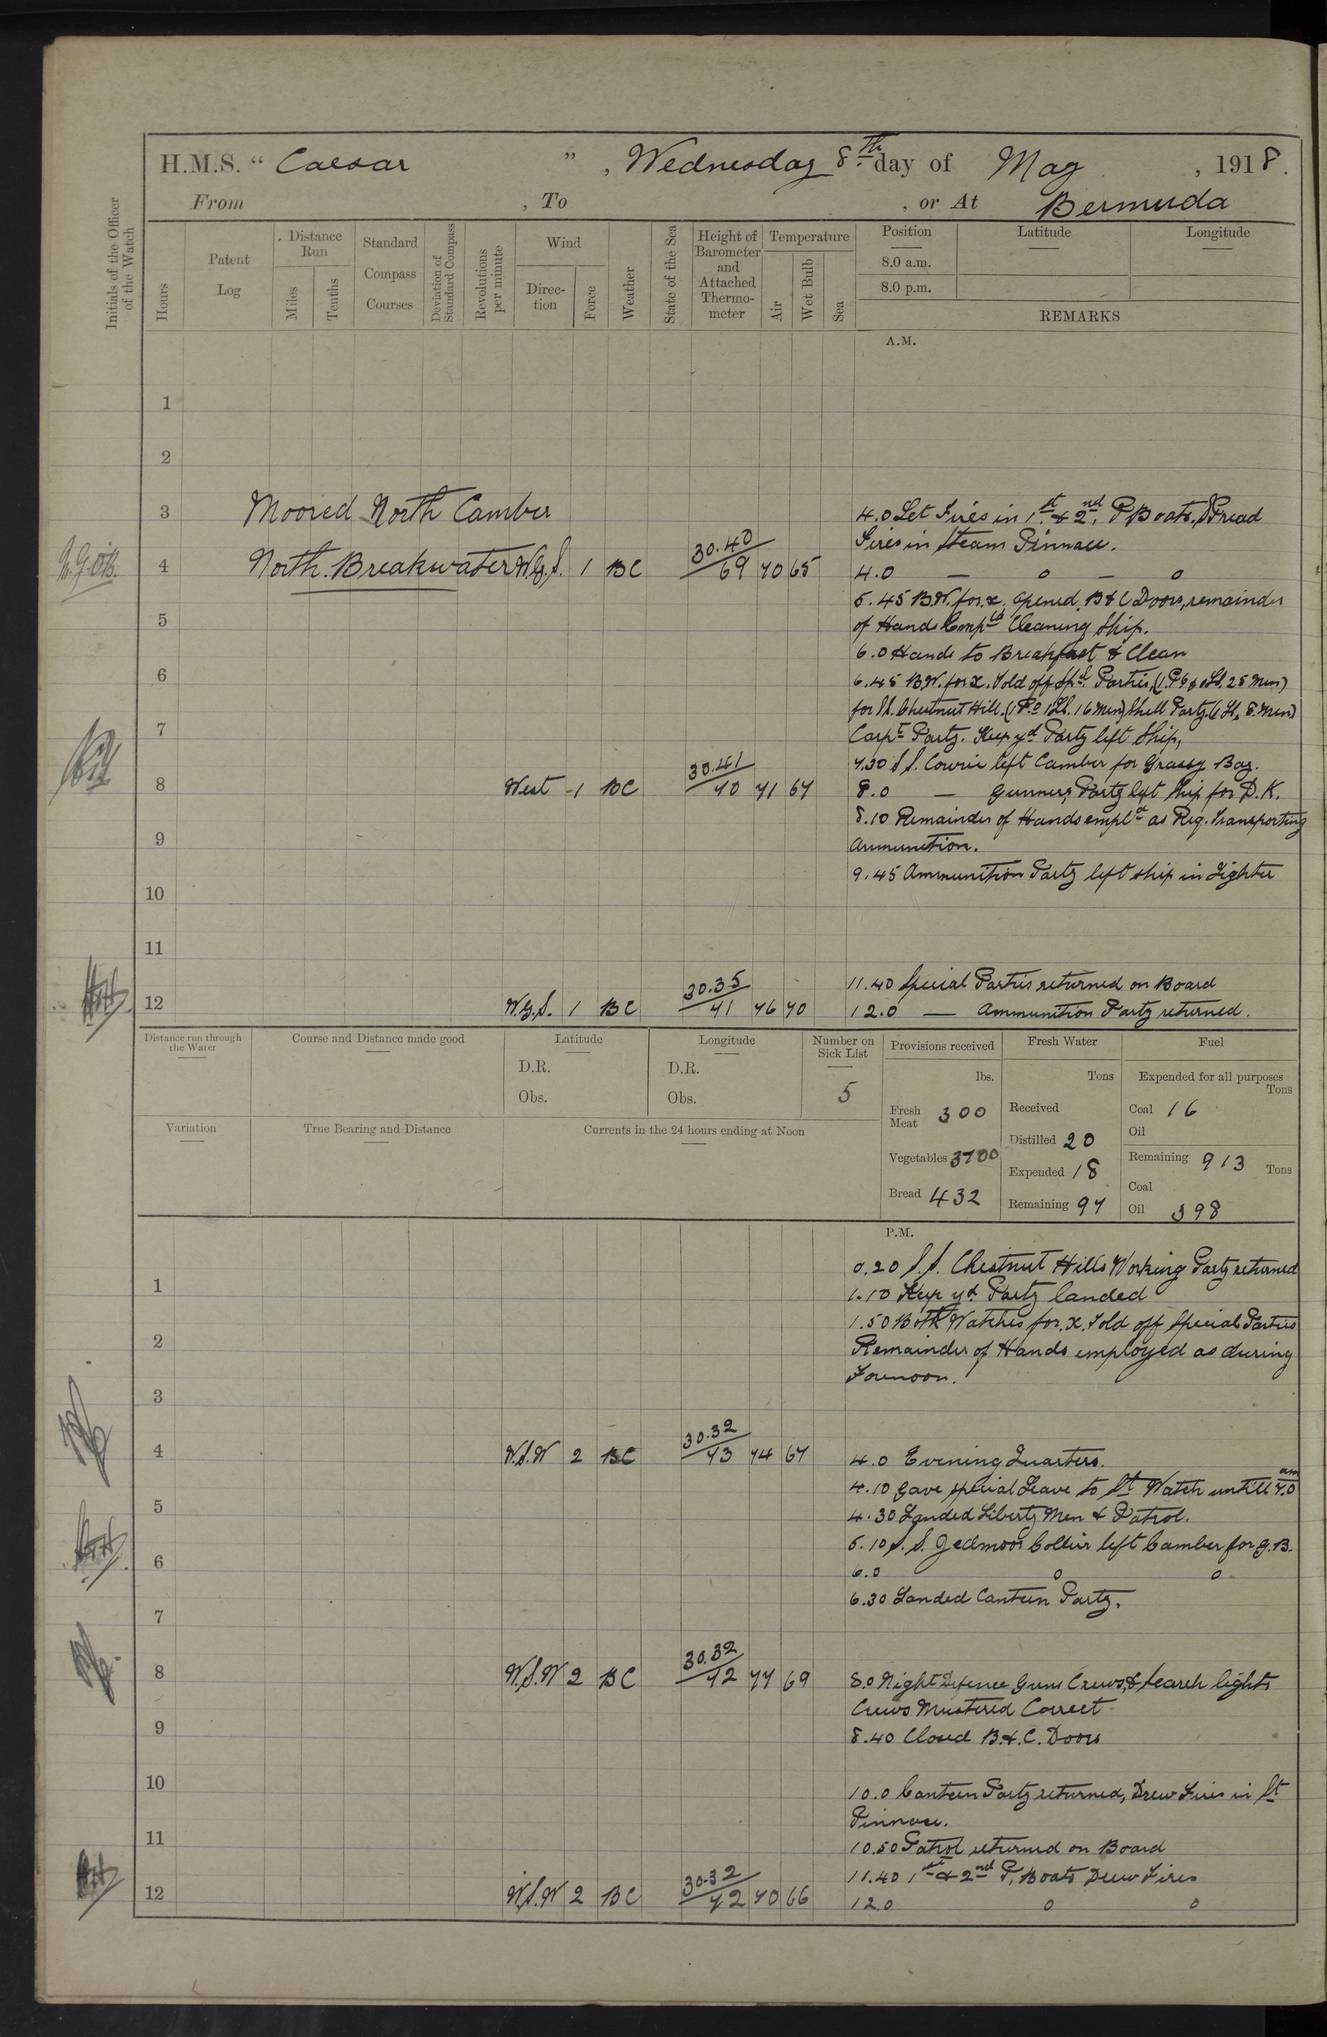 H.M.S. “ Caesar ” , Wednesday 8.th day of May , 1918.
From , To , or At Bermuda
Initials of the Officer of the Watch
Hours
Patent Log
Distance Run
Miles
Tenths
Standard Compass Courses
Deviation of Standard Compass
Revolutions per minute
Wind
Direction
Force
Weather
State of the Sea
Height of Barometer and Attached Thermometer
Temperature
Air
Wet Bulb
Sea
Position
Latitude
Longitude
8.0 a.m.
8.0 p.m.
REMARKS
A.M.
1
2
3 Moored North Camber 4.0 Let Fires in 1st & 2nd, P Boats. Spread
Fires in Steam Pinnace.
4 North Breakwater W.b.S. 1 BC 30.40/69 70 65 4.0 — 0 — 0
5.45 B.W. for x. opened B & C Doors, remainder
5 of Hands Empld Cleaning Ship.
6.0 Hands to Breakfast & Clean
6 6.45 B.W. for x. Told off Spl. Parties, 25 Men)
for S.S. Chestnut Hill. 16 Men) Shell Party 8 Men)
7 Carpt Party. Keep yd Party left Ship,
7.30 S.S. left Camber for Grassy Bay.
8 West 1 BC 30.41/70 71 67 8.0 — Gunners Party left Ship for D.K.
8.10 Remainder of Hands empld as Req. Transporting
9 Ammunition.
9.45 Ammunition Party left ship in Lighter
10
11
11.40 Special Parties returned on Board
12 W.b.S. 1 BC 30.35/71 76 70 12.0 — Ammunition Party returned.
Distance run through the Water
Course and Distance made good
Latitude
D.R.
Obs.
Longitude
D.R.
Obs.
Number on Sick List
5
Provisions received
lbs.
Fresh Meat 300
Vegetables 3700
Bread 432
Fresh Water
Tons
Received
Distilled 20
Expended 18
Remaining 97
Fuel
Expended for all purposes
Tons
Coal 16
Oil
Remaining 913 Tons
Coal
Oil 398
Variation
True Bearing and Distance
Currents in the 24 hours ending at Noon
P.M.
0.20 S.S. Chestnut Hills Working Party returned
1 1.10 Keep yd. Party landed
1.50 Both Watches for x. Told off Special Parties
2 Remainder of Hands employed as during
Forenoon.
3
4 W.S.W 2 BC 30.32/73 74 67 4.0 Evening Quarters.
4.10 Gave special Leave to St. Watch untill 7.0 am
5 4.30 Landed Liberty Men & Patrol.
5.10 S.S. Jedmoor Collier left Camber for G.B.
6 6.0 0 0
6.30 Landed Canteen Party.
7
8 W.S.W 2 BC 30.32/72 77 69 8.0 Night Defence Guns Crews, & Search lights
Crews Mustered Correct
9 8.40 Closed B. & C. Doors
10 10.0 Canteen Party returned, Drew Fires in St
Pinnace.
11 10.50 Patrol returned on Board
11.40 1st & 2nd P. Boats Drew Fires
12 W.S.W 2 BC 30.32/72 70 66 12.0 0 0